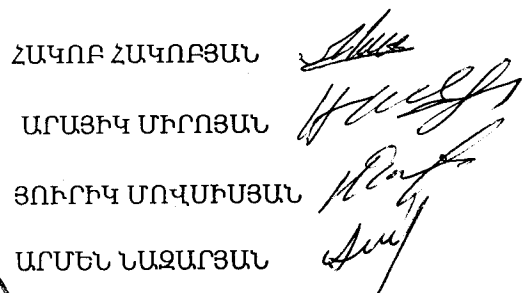 ՀԱԿՈԲ ՀԱԿՈԲՅԱՆ
ԱՐԱՅԻԿ ՄԻՐՈՅԱՆ
ՅՈՒՐԻԿ ՄՈՎՍԻՍՅԱՆ
ԱՐՄԵՆ ՆԱԶԱՐՅԱՆ